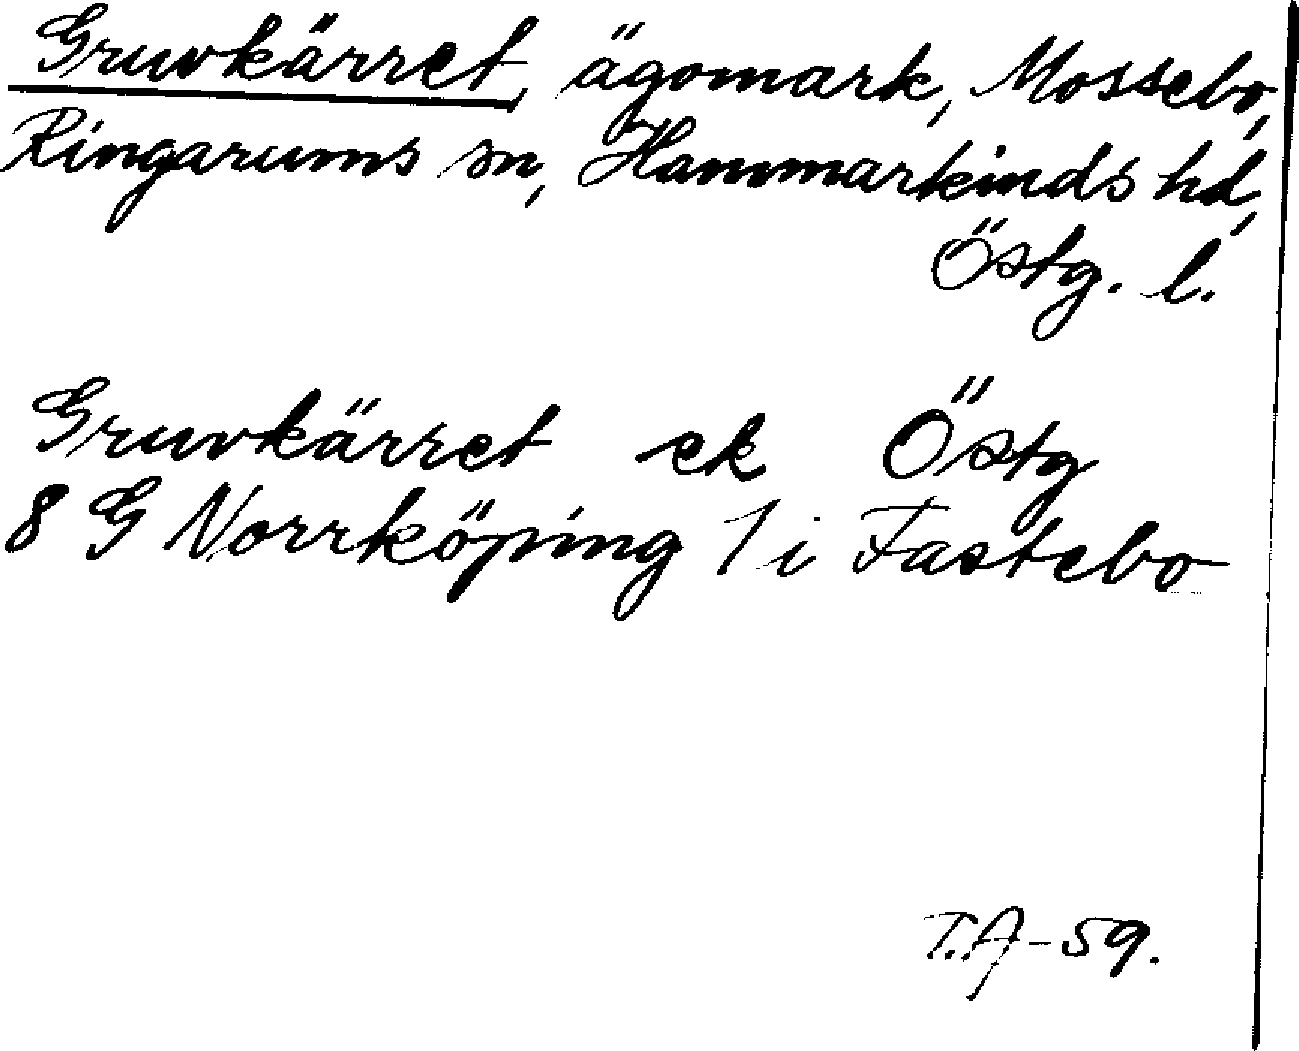 Gruvkärret, ägomark, Mossebo,
Ringarums sn, Hammarkinds hd,
Östg. l.
Gruvkärret ek Östg
8 G Norrköping 1 i Fastebo
T.A-59.